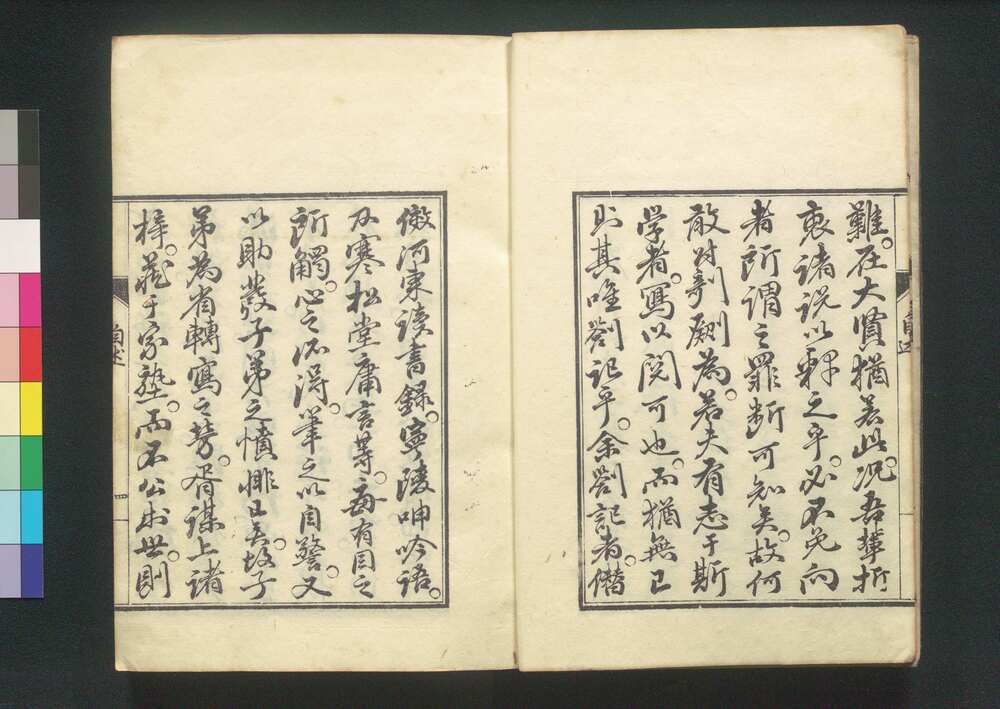 難。在大賢猶若此。况吾輩折
衷諸説以釋之乎。必不免向
者所謂之罪断可知矣。故何
敢付剞劂為。若夫有志于斯
学者。寫以閲可也。而猶無已
則其唯劄記乎。余劄記者。僭
倣河東讀書録。寧陵呻吟語。
及寒松堂庸言等。毎有目之
所觸。心之所得。筆之以自警。又
以助發子弟之憤悱日矣。故子
弟為省轉寫之勞。胥謀上諸
梓。蔵于家塾。而不公於世。則
自述
四